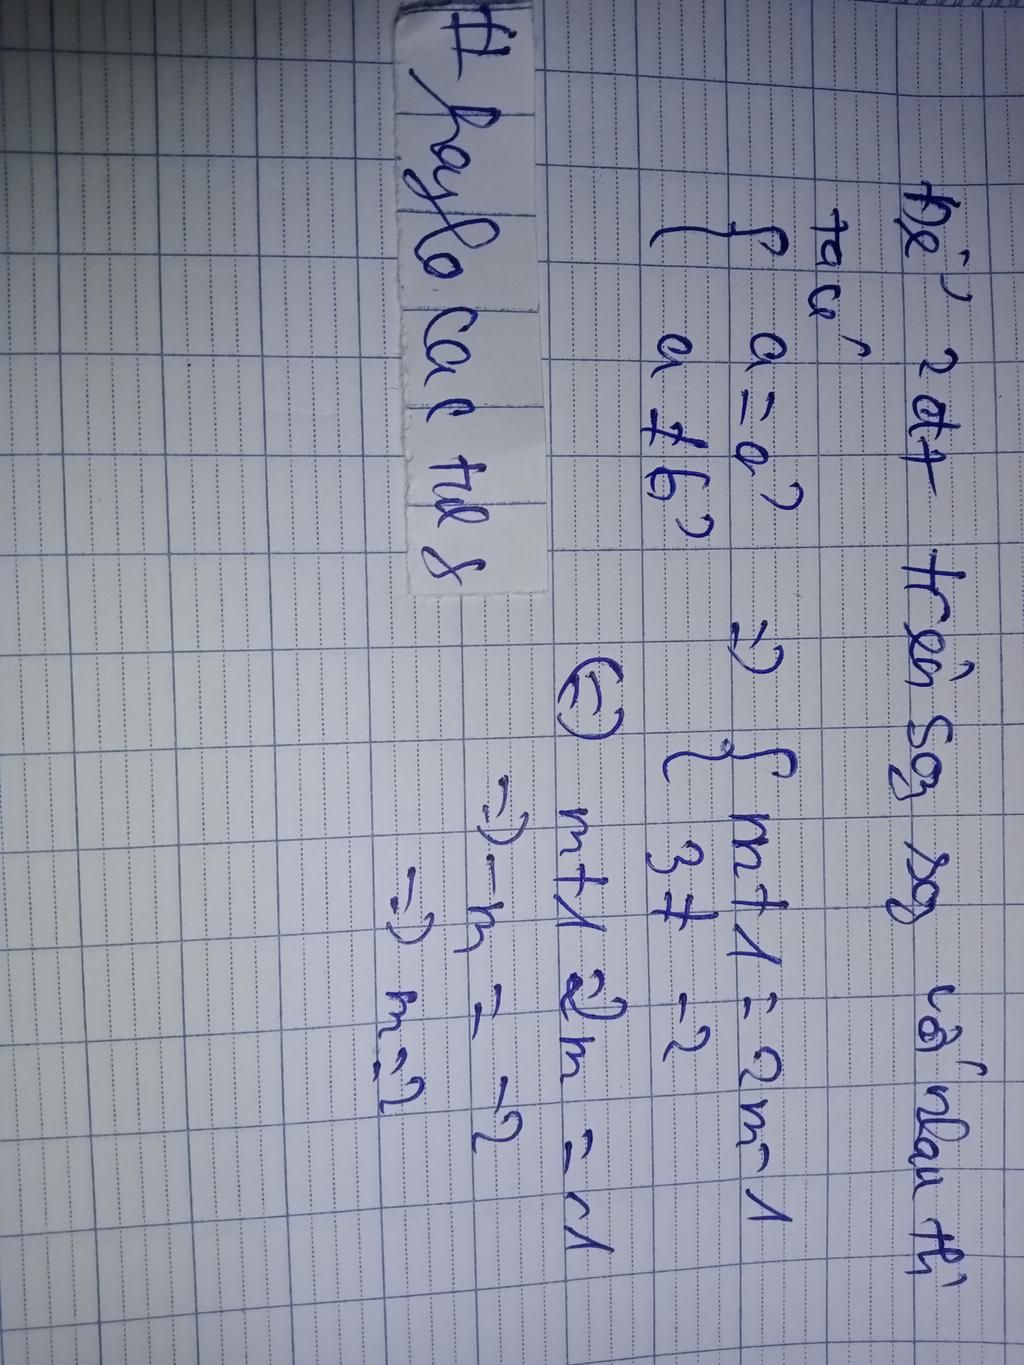 Để 2đt trên sog sog với nhau thì
ta có
{ a = a'
a ≠ b'
=> { m+1 = 2m-1
3 ≠ -2
(=) m+1 - 2m = -1
=) -m = -2
=) m=2
# hayloca c tus